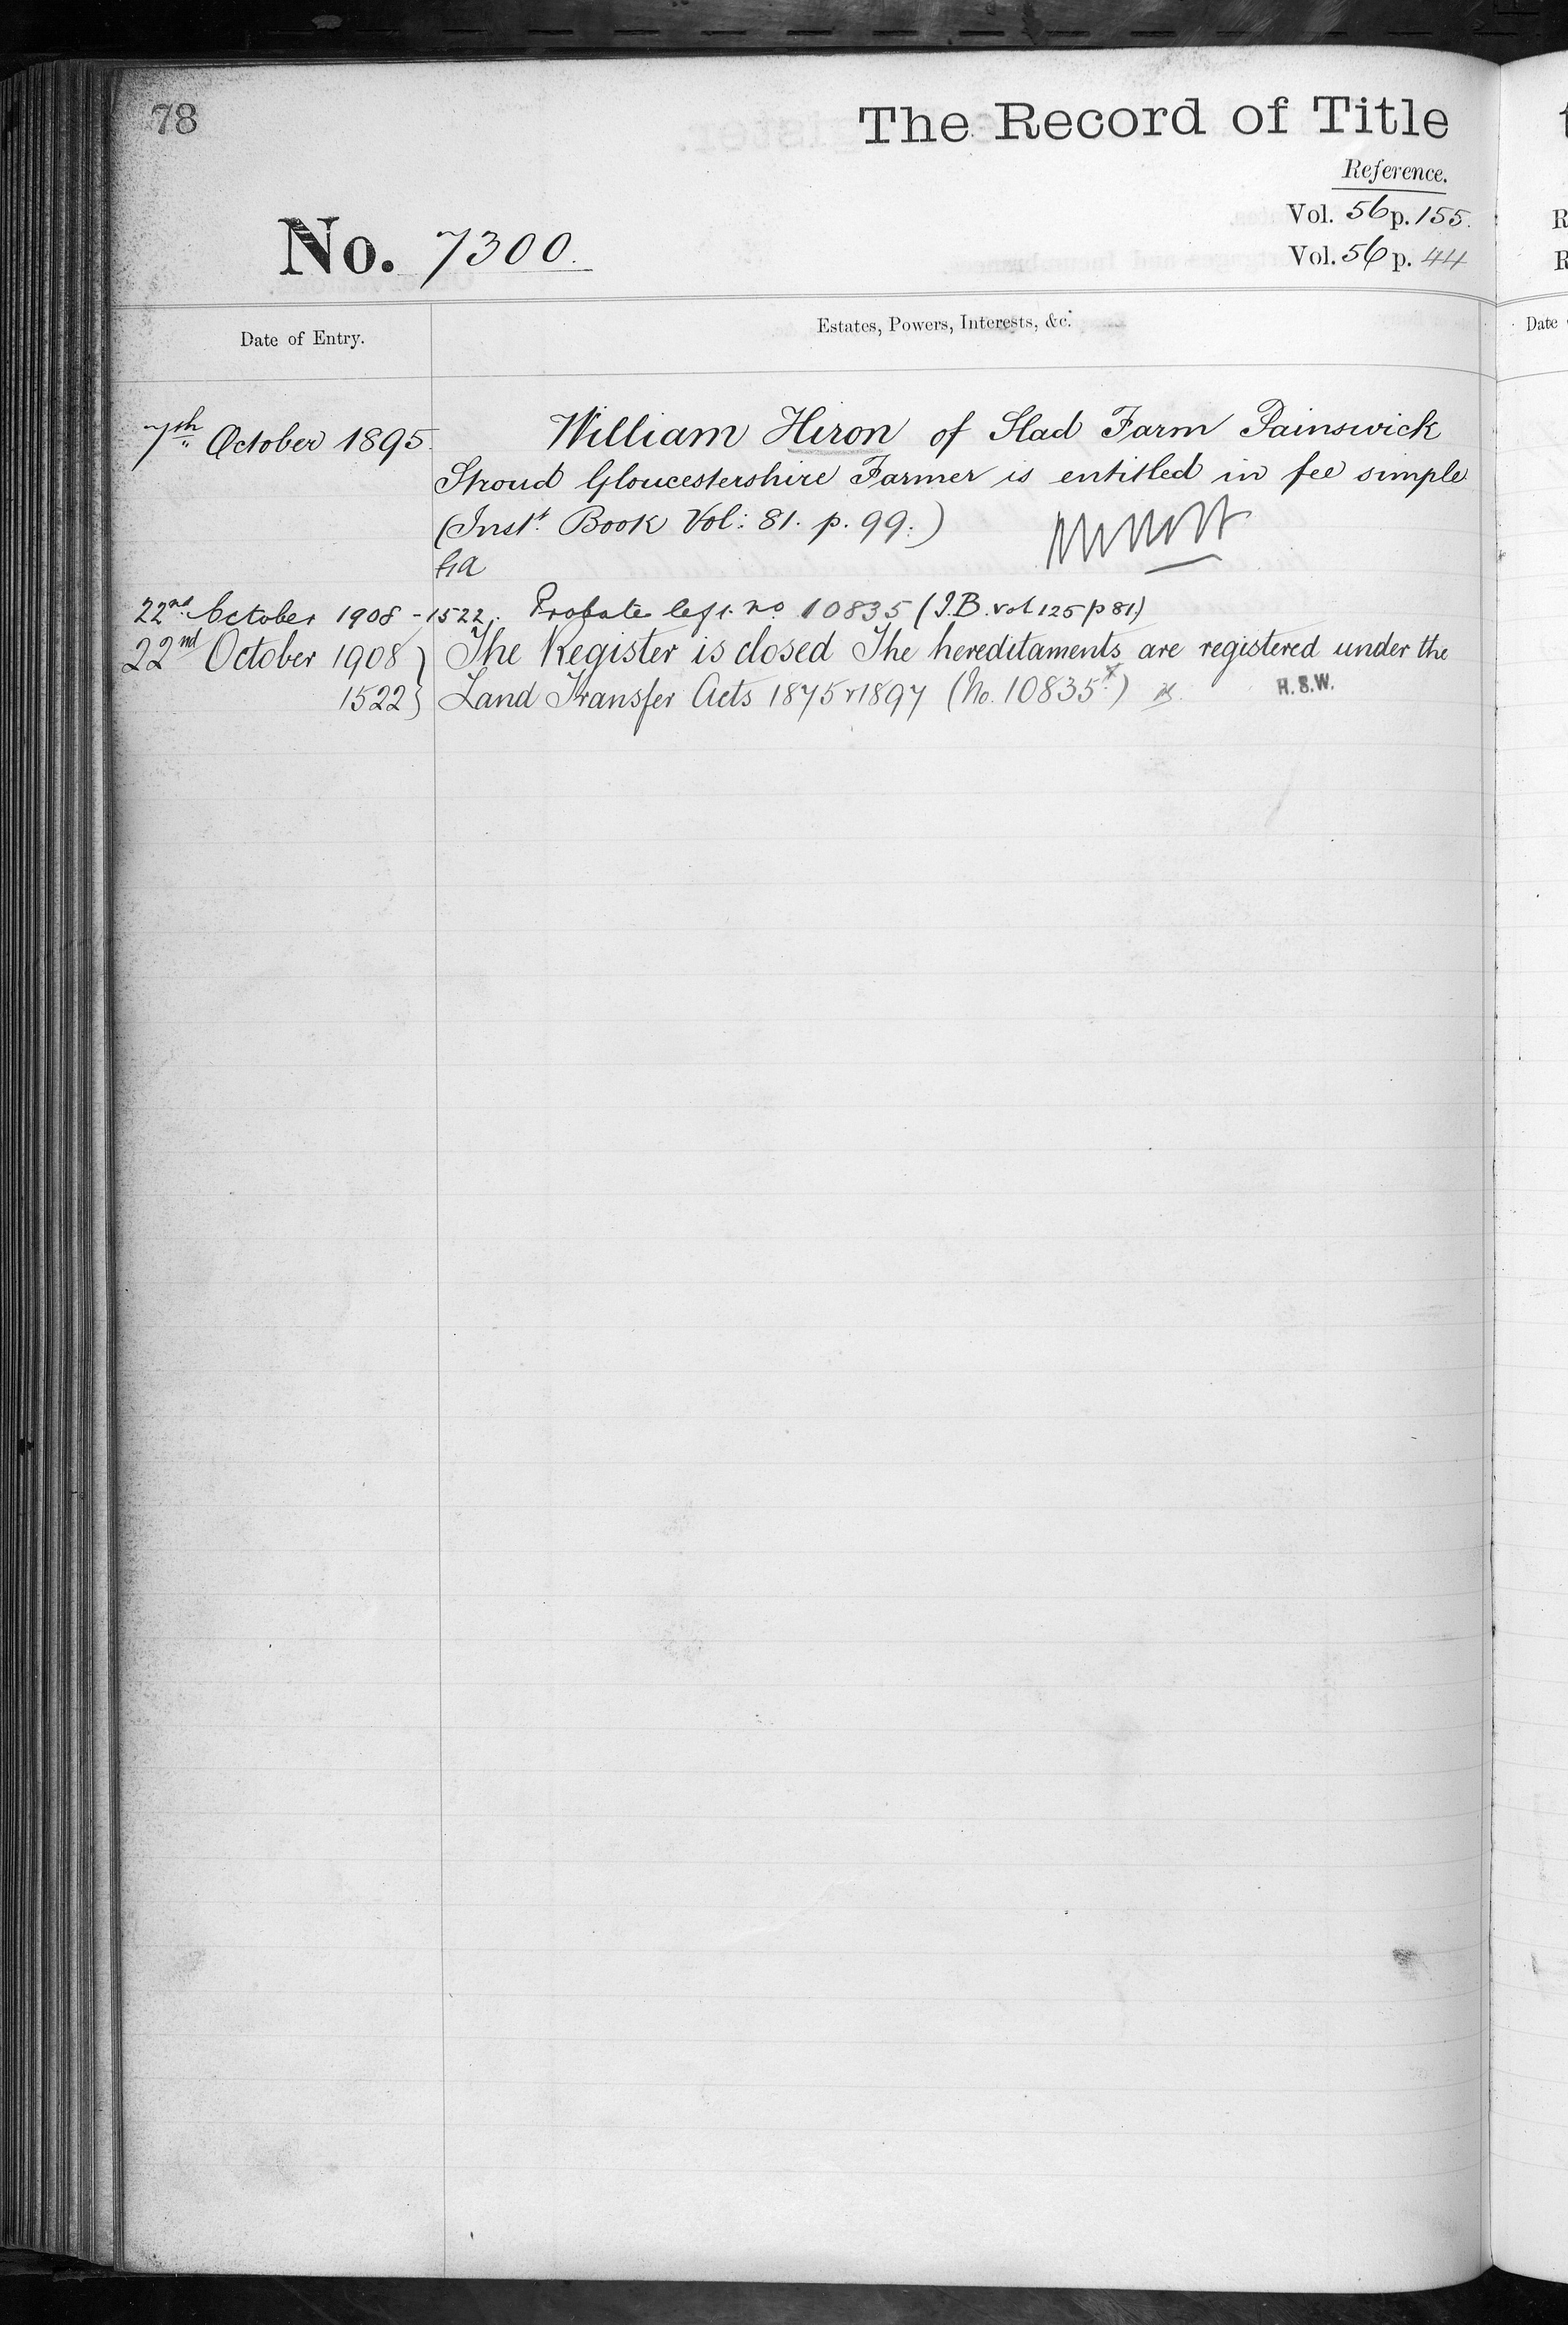 78
The Record of Title
Reference.
Vol. 56 p. 155.
No. 7300.
Vol. 56 p. 44
Date of Entry.
Estates, Powers, Interests, &c.
7th October 1895.
William Hiron of Slad Farm Painswick
Stroud Gloucestershire Farmer is entitled in fee simple
(Inst. Book Vol: 81. p. 99.)
22nd October 1908 - 1522. Probate left. no 10835 (I.B. vol 125 p 81)
22nd October 1908 } The Register is closed The hereditaments are registered under the
1522 } Land Transfer Acts 1875 & 1897 (No. 10835x) H.S.W.
Date